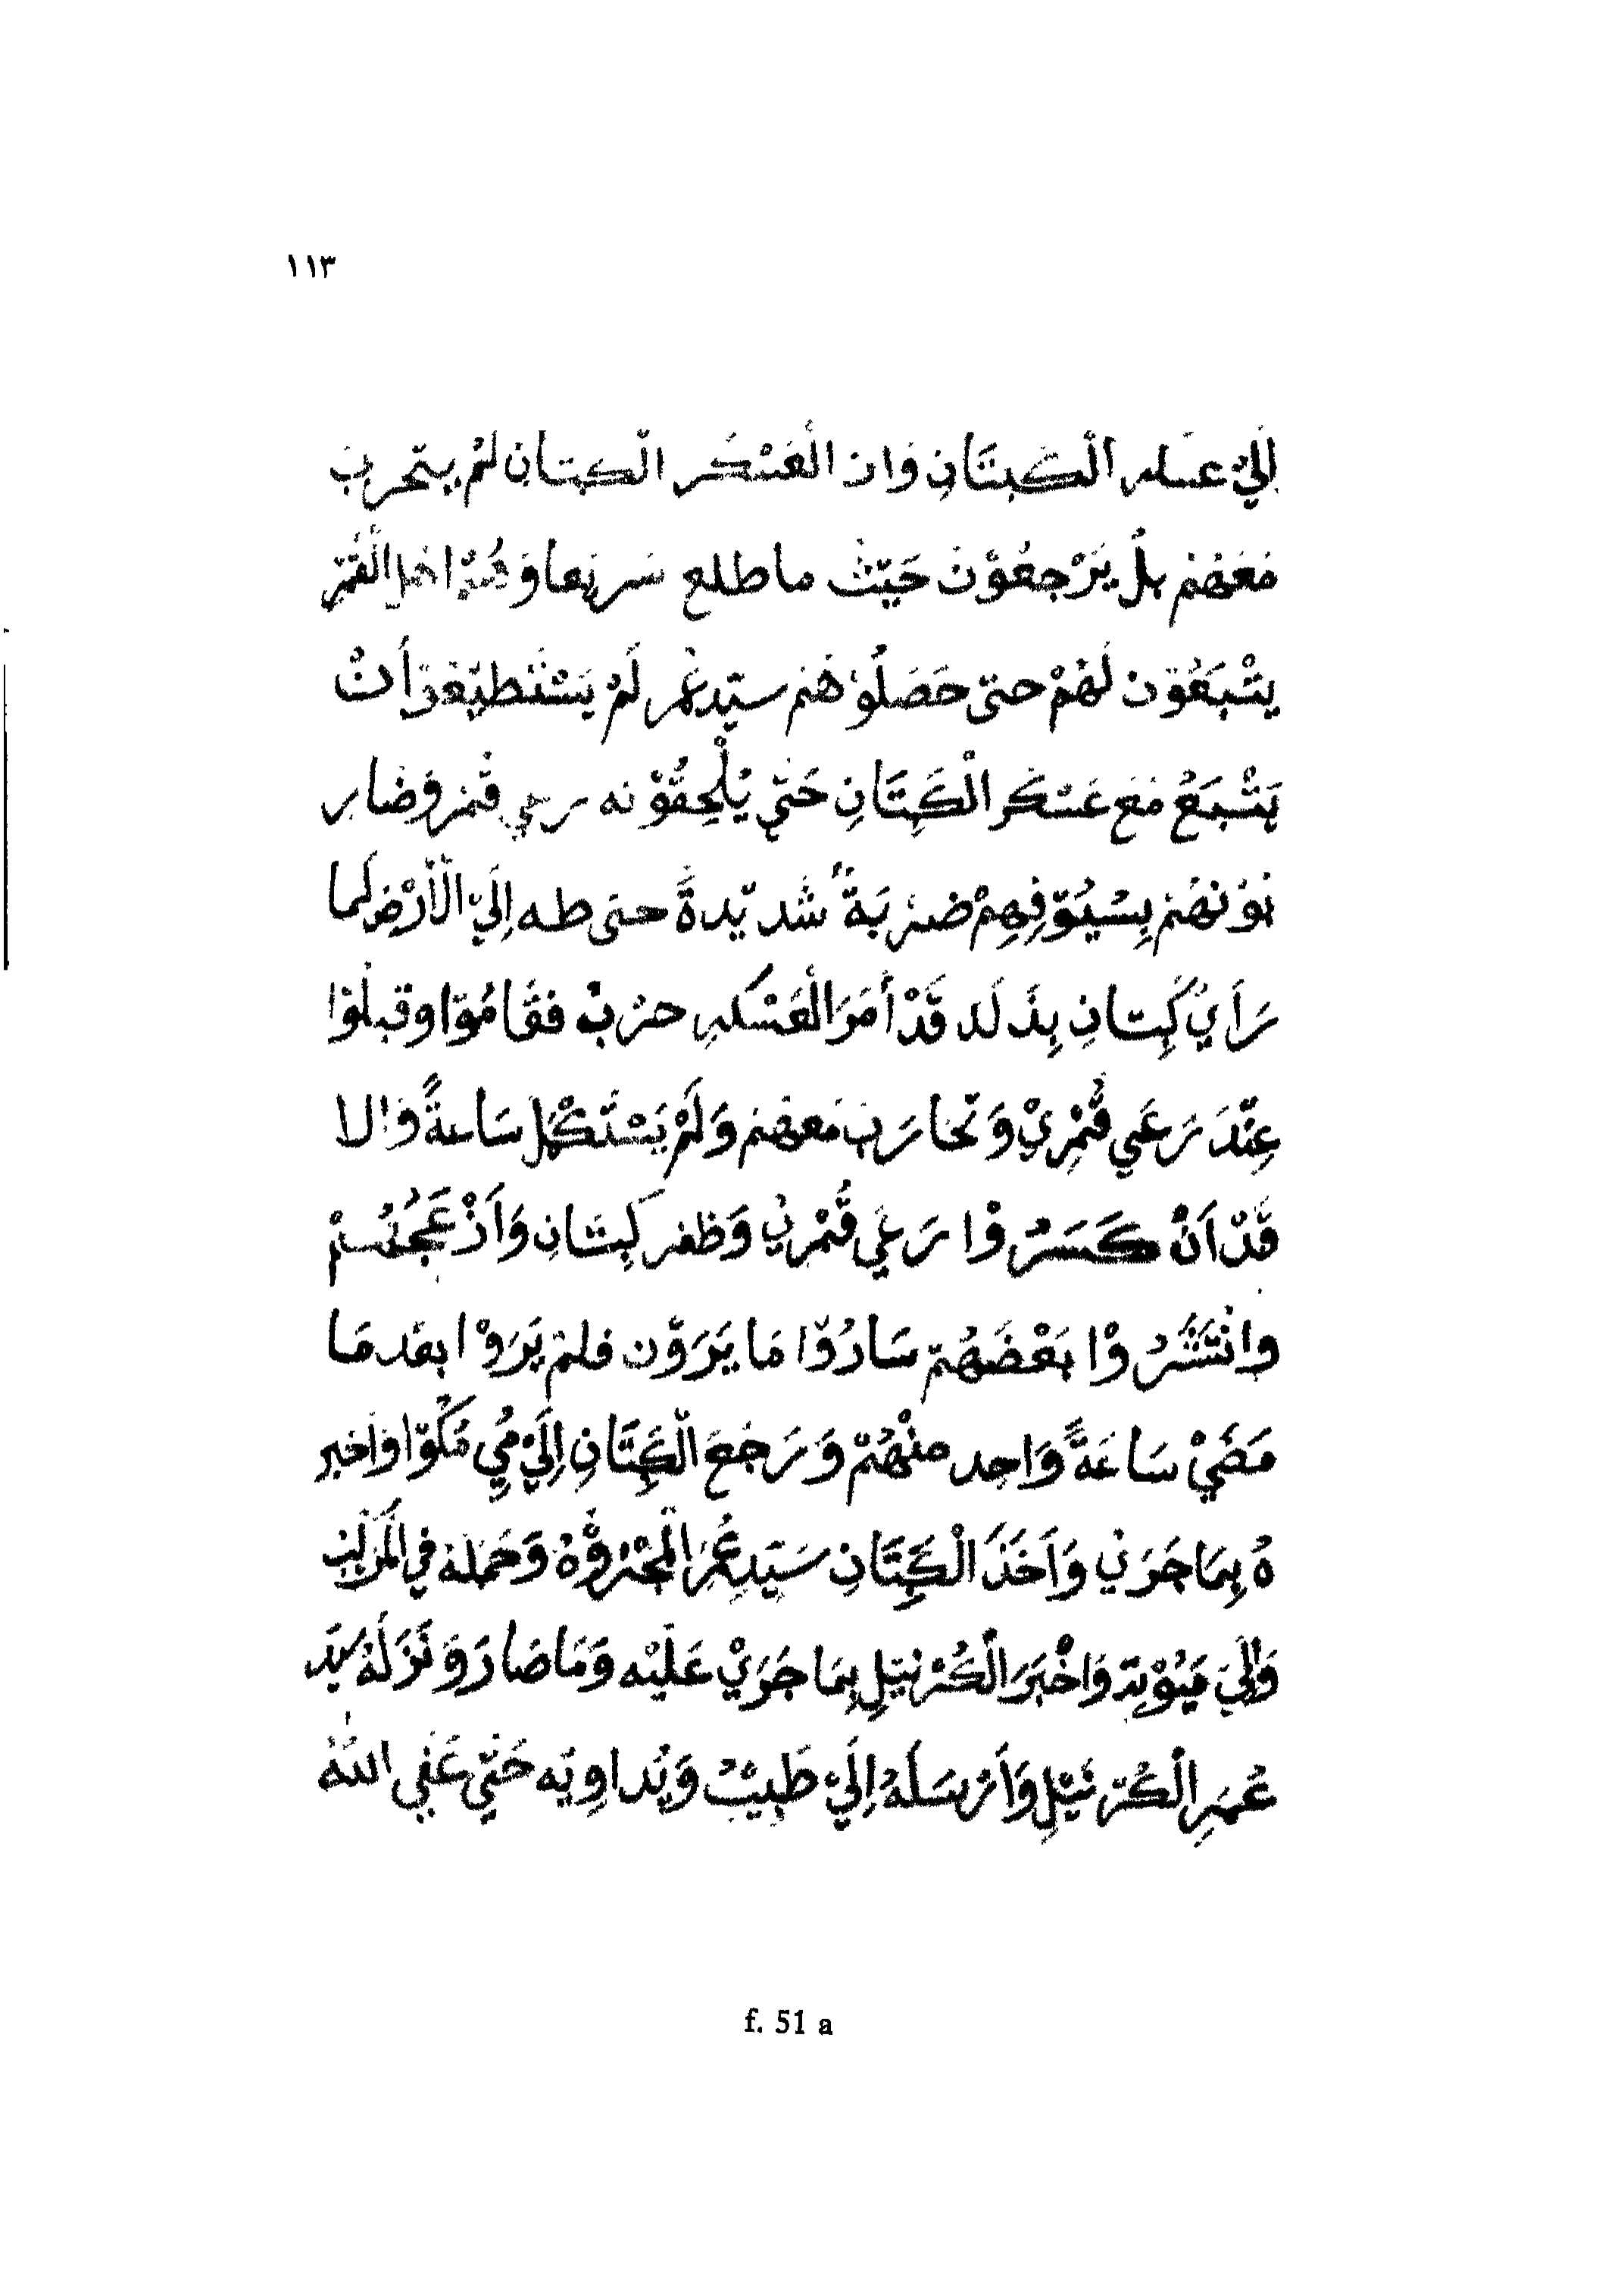 ١١٣
اِلَيْ عسكر الْكَبِتَانِ وَان الْعَسْكَر الّكبتان لَمْ يتحرب
مَعَهُمْ بلْ يَرْجِعُوْنَ حَيْث ماطلع سَرِيعا وَ اهل الْقُمْر
يتْبَعُوْن لَهُمْ حتيّ حَصَلُوْ هُمْ سيّد عُمر لَمْ يَسْتَطيْعوْ أَنْ
يَتْبَعُ مَعَ عَسْكر الْكَبِتَانِ حَتّي يُلْحِقُوْنه رعي قُمْر وَضَار
بُوْنَهُمْ بِسُيُوْفِهِمْ ضرْبَةً شَديْدةً حتي طه اِلَيْ الْأَرْضِ لَما
رَأَيْ كَبِتانِ بِذَلَك قَدْ أَمَرَ الْعَسْكرِ حرْبْ فقَامُوْا وقبلُوْا
عِنْدَ رَعَيِ قُمْرِيْ وَتحَارَبْ مَعهُمْ وَلَمْ يَسْتَكْمِلْ سَاعةً وَالا
قَدْ اَنْ كَسَرُوْا رَعَيِ قُمْرِيْ وَظفر كَبِتَانِ وَاَزْعَجَهُمْ
وانْتَشَرُوْا بَعْضَهُمْ سَارُوْا مَا يَرَوْن فلمْ يَرَوْا بعْدمَا
مَضَيْ سَاعَةً وَاحِد منْهُمْ وَرَجَعَ الْكَبِتَانِ اِلَيْ مِيِ مَكُوْا وَاخبر
هُ بِمَا جَرَيْ وَاَخَذَ الْكَبِتَانِ سَيّدِ عُمَرَ الْمَجْرُوْهُ وَحَمَلَهُ فِي الْمَرْكِبْ
وَاِلَيْ مَيُوْتِة وَاخْبَرَ الْكُرْنِيْلِ بِمَا جَرَيْ عَلَيْه وَمَا صَارَ وَنَزَلَهُ سَيّد
عُمَرِ الْكُرْنَيْلِ وَاَرْسَلَهُ اِلَيْ طَبِيْبْ وَيُداوِيْه حَتّي عَفِي اللهُ
f. 51 a